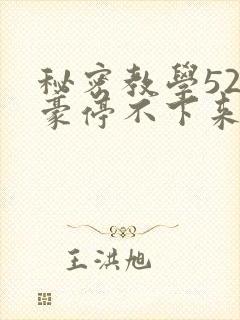 秘密教學52
豪停不下来
王洪旭